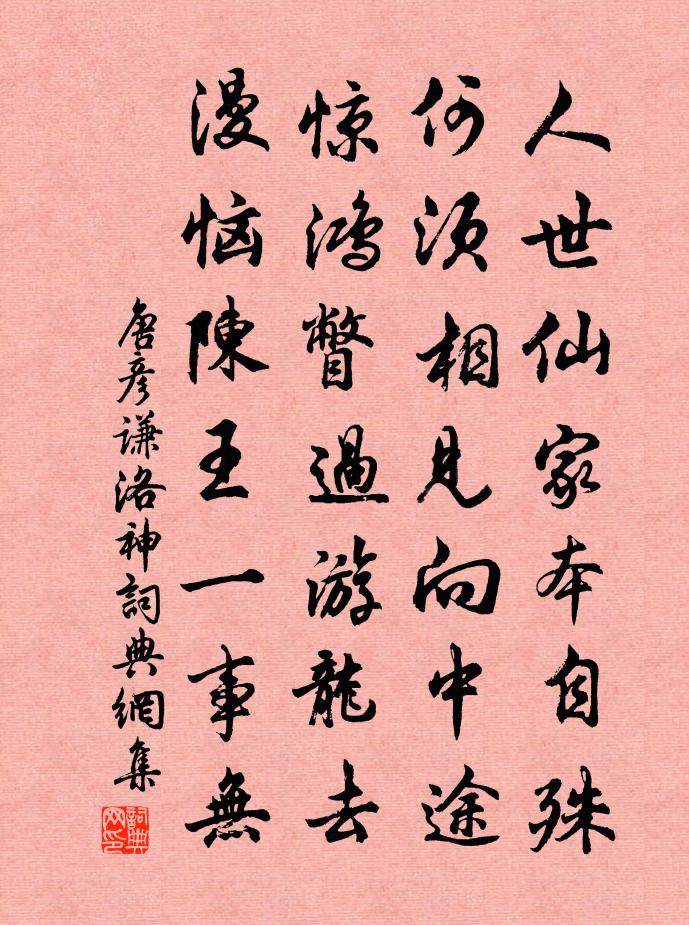 人世仙家本自殊
何须相見向中途
惊鴻瞥過游龍去
漫惱陳王一事無
唐彦謙洛神詞典網集
詞典网印